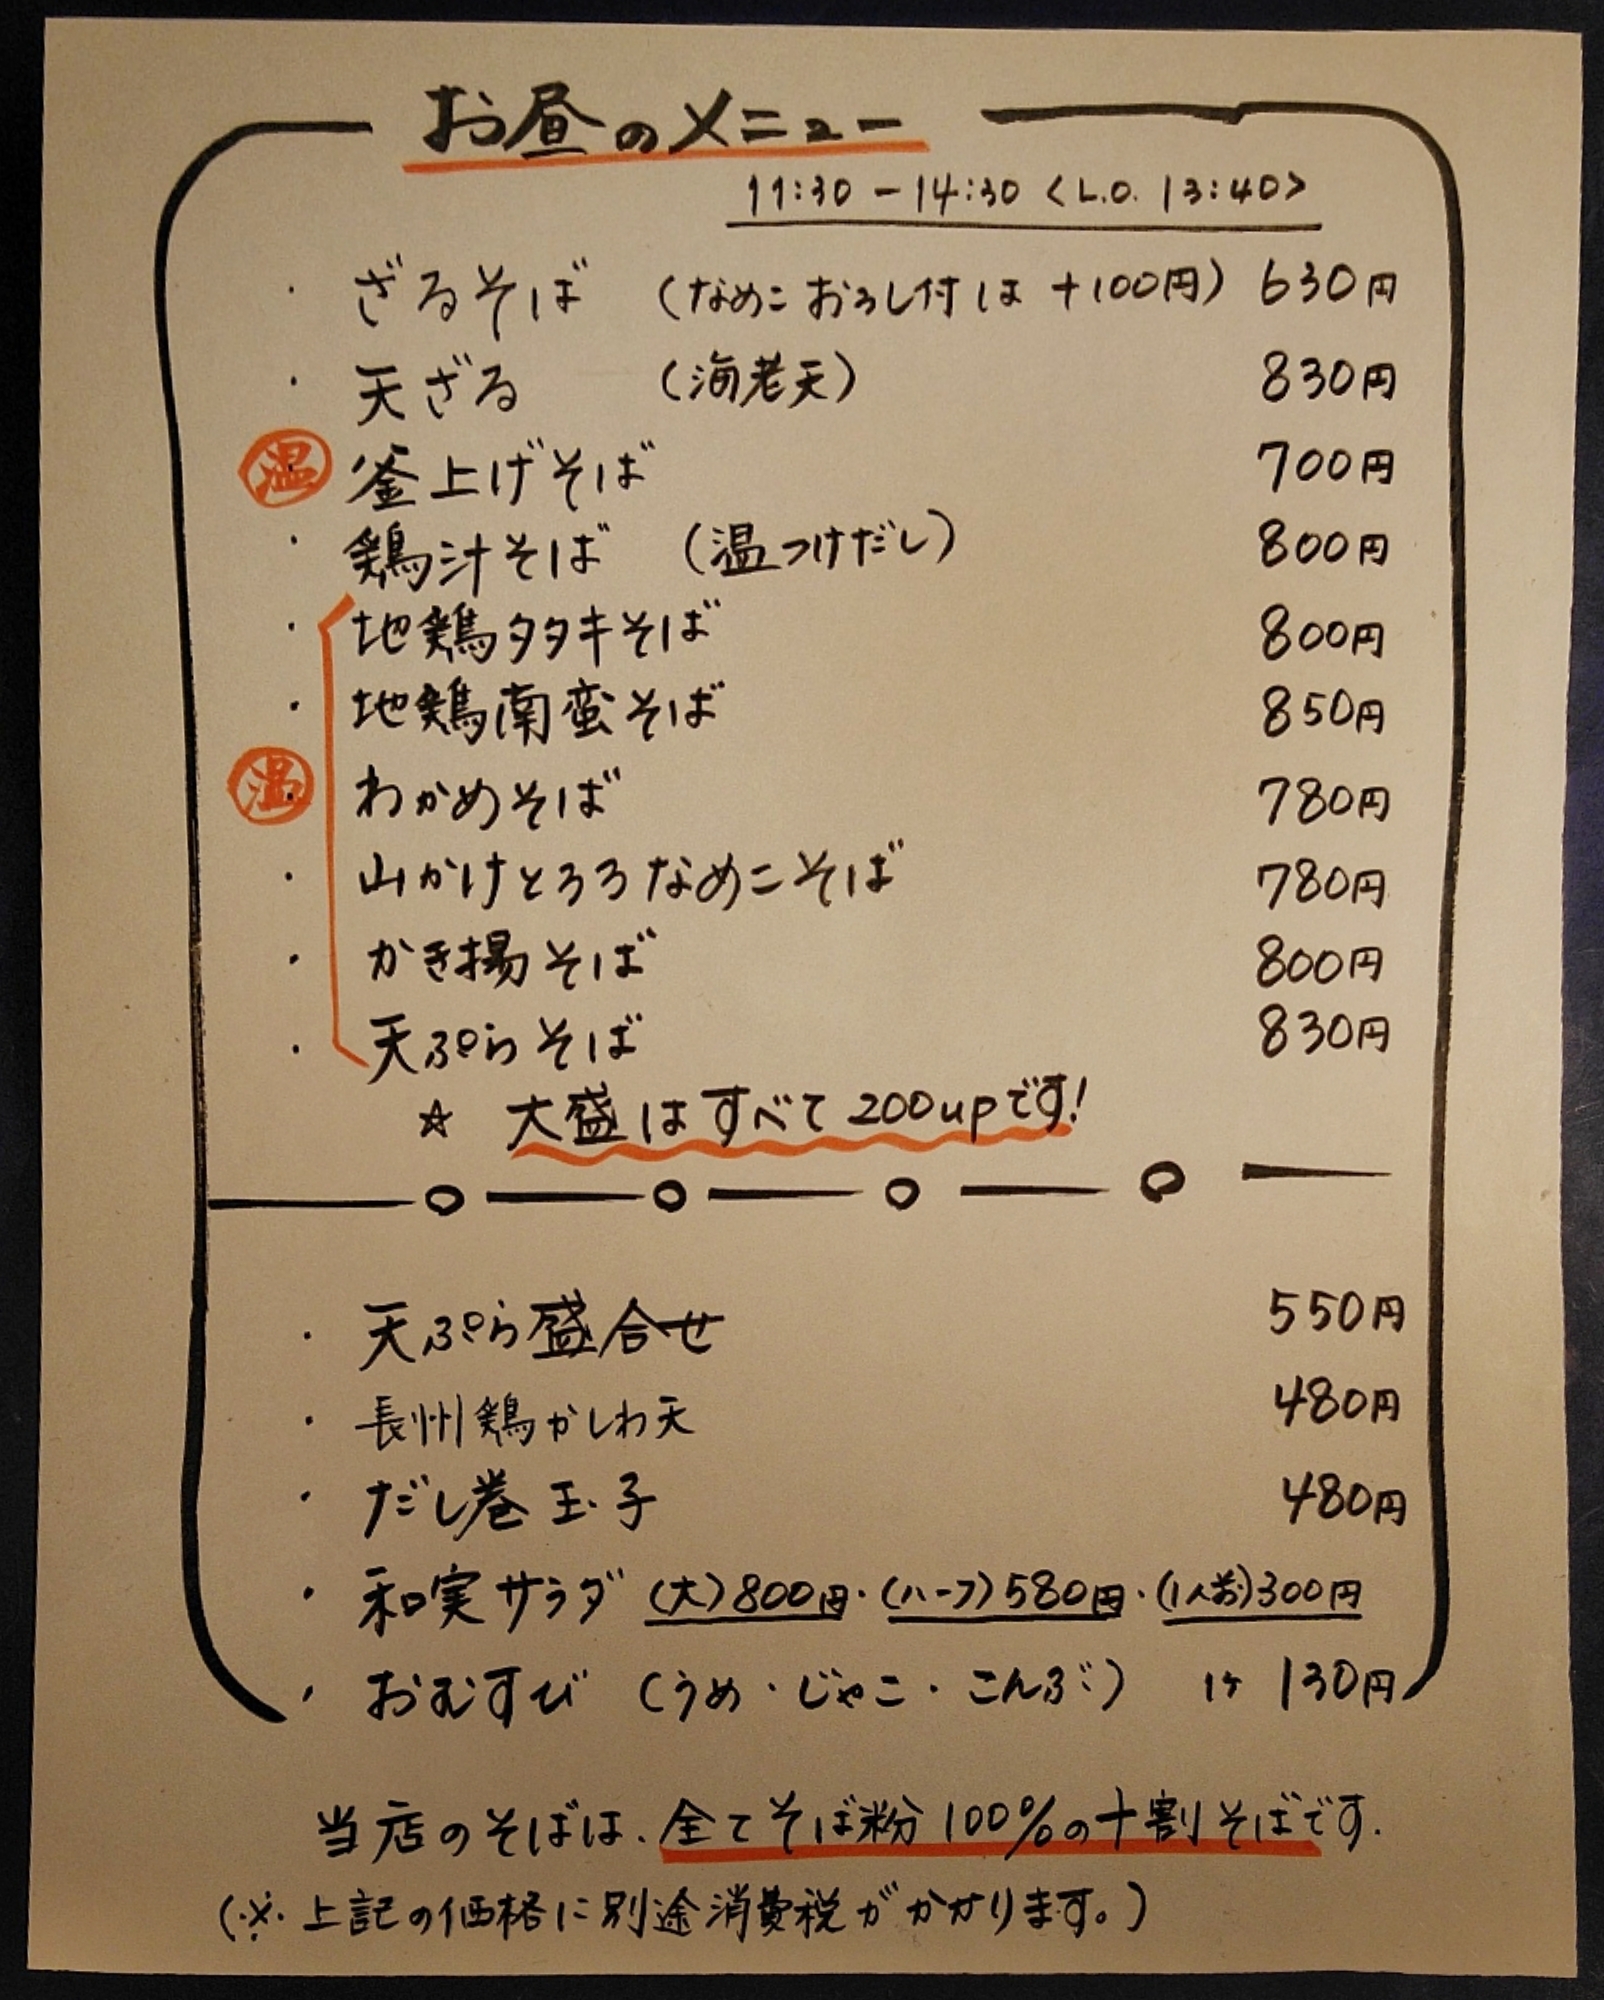 お昼のメニュー
11:30 - 14:30 <L.O. 13:40>
・ ざるそば (なめこおろし付は +100円) 630円
・ 天ざる (海老天) 830円
温 釜上げそば 700円
・ 鶏汁そば (温つけだし) 800円
・ 地鶏タタキそば 800円
・ 地鶏南蛮そば 850円
温 わかめそば 780円
・ 山かけとろろなめこそば 780円
・ かき揚そば 800円
・ 天ぷらそば 830円
☆ 大盛はすべて200upです!
・ 天ぷら盛合せ 550円
・ 長州鶏かしわ天 480円
・ だし巻玉子 480円
・ 和実サラダ (大)800円・(ハーフ)580円・(1人前)300円
・ おむすび (うめ・じゃこ・こんぶ) 1ケ 130円
当店のそばは、全てそば粉100%の十割そばです.
(※上記の価格に別途消費税がかかります。)